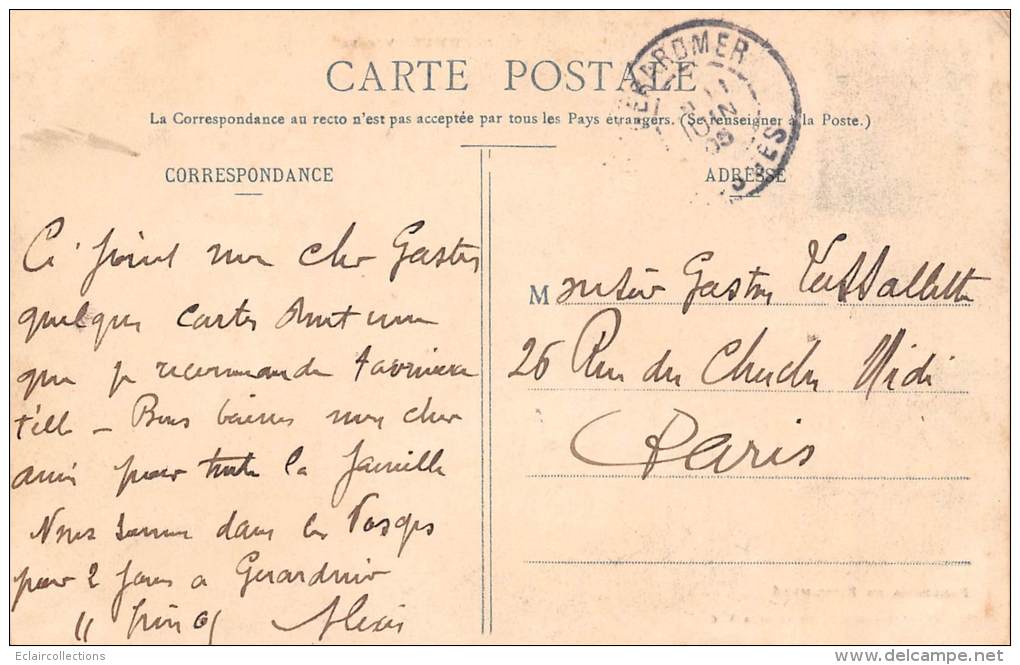 CARTE POSTALE
GERARDMER
11
JUIN
VOSGES
La Correspondance au recto n'est pas acceptée par tous les Pays étrangers. (Se renseigner à la Poste.)
CORRESPONDANCE
ADRESSE
Ci joint mon cher Gaston
quelques cartes dont une
que je recommande
Bons baisers mon cher
ami pour toute la famille
Nous sommes dans les Vosges
pour 2 jours a Gerardmer
11 juin 09 Alexis
Monsieur Gaston
26 Rue du Cherche Midi
Paris
Eclaircollections
www.delcampe.net